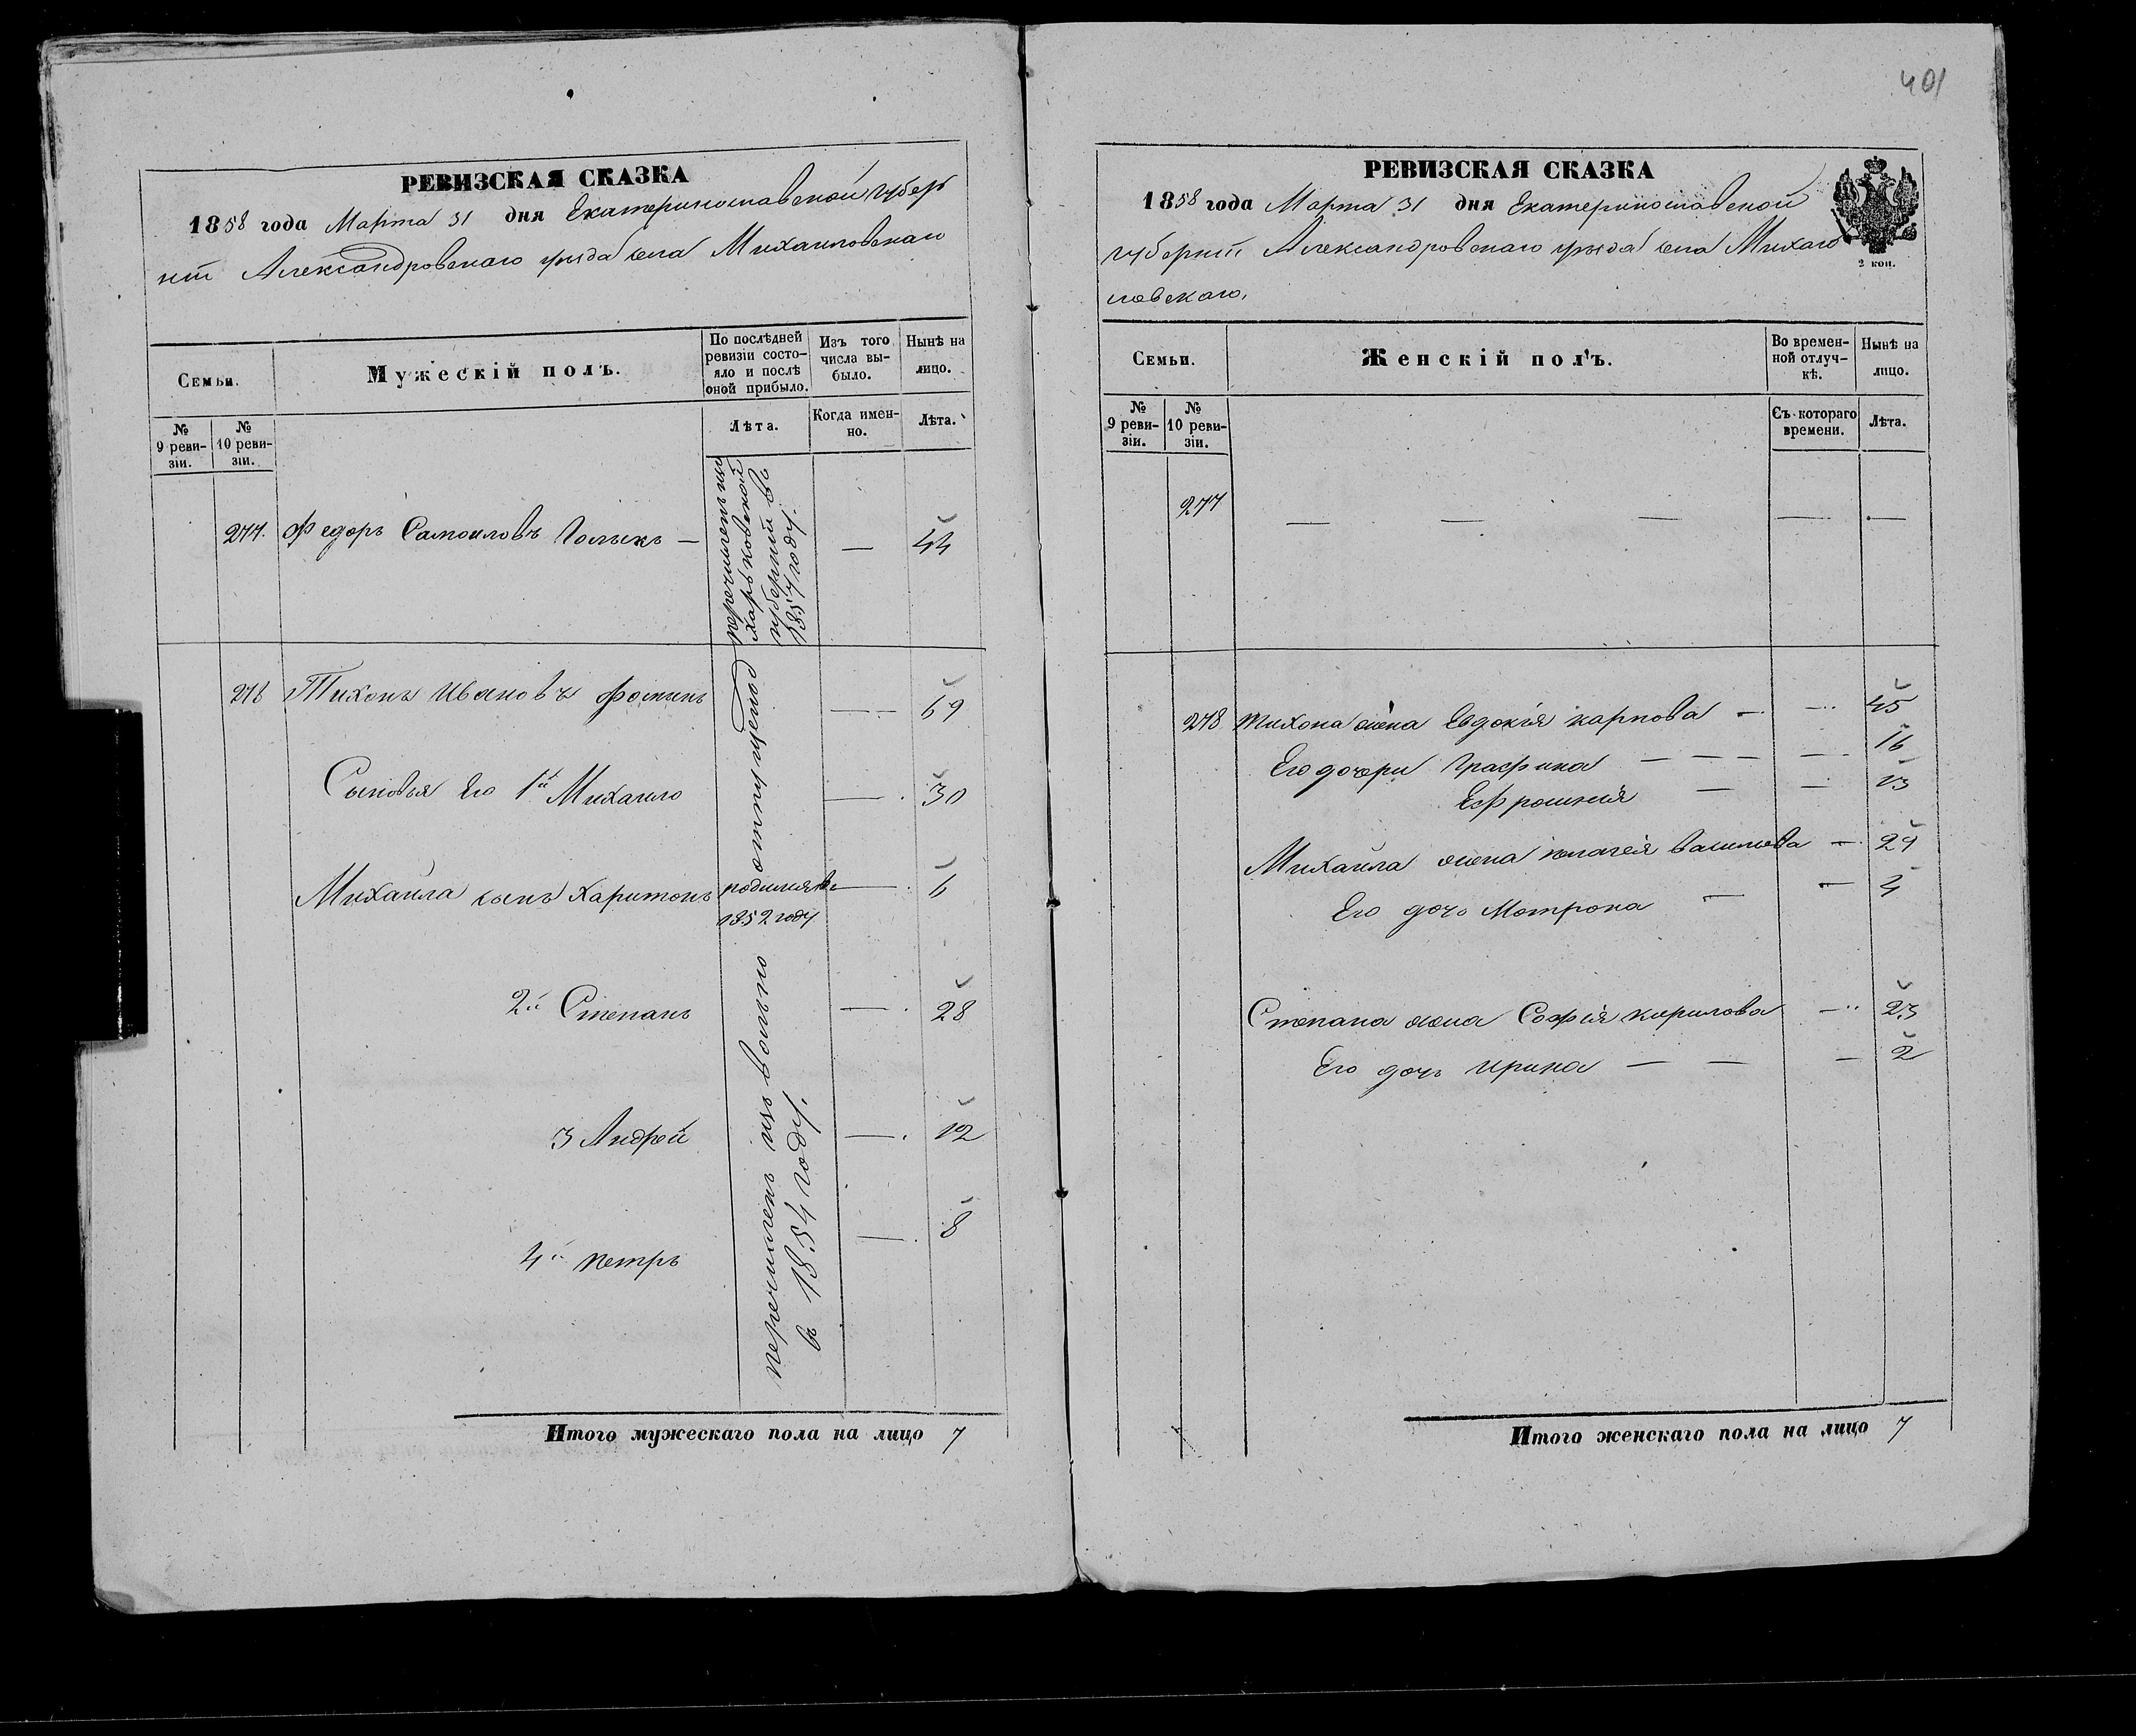 401
РЕВИЗСКАЯ СКАЗКА
1858 года Марта 31 дня Екатеринославской губер
нии Александровскаго уѣзда села Михаиловскаго
Семьи.
Мужескій полъ.
По послѣдней
ревизіи состо-
яло и послѣ
оной прибыло.
Изъ того
числа вы-
было.
Нынѣ на
лицо.
№
9 реви-
зіи.
№
10 реви-
зіи.
Лѣта.
Когда имен-
но.
Лѣта.
277. Федоръ Самоиловъ — — 44
перечисленъ изъ
Харьковской
губерніи въ
1857 году.
278 Тихонъ Ивановъ Фоминъ — — 69
Сыновья Его 1й Михаило — 30
Михаила сынъ Харитонъ родился въ — 6
1852 году
2й Степанъ — 28
3 Андрей — 12
4й Петръ — 8
перечисленъ изъ вольно отпущеной
въ 1854 году.
Итого мужескаго пола на лицо 7
РЕВИЗСКАЯ СКАЗКА
1858 года Марта 31 дня Екатеринославской
губерніи Александровскаго уѣзда села Михаи
ловскаго.
2 коп.
Семьи.
Женскій полъ.
Во времен-
ной отлуч-
кѣ.
Нынѣ на
лицо.
№
9 реви-
зіи.
№
10 реви-
зіи.
Съ котораго
времени.
Лѣта.
277 — — — — —
278 Тихона жена Евдокія Карпова — — 45
Его дочери Графина — — — — 16
Ефросинія — — 13
Михаила жена Пелагея Васильева — 29
Его дочь Мотрона — — 4
Степана жена Софія Кирилова — 23
Его дочь Ирина — — — 2
Итого женскаго пола на лицо 7